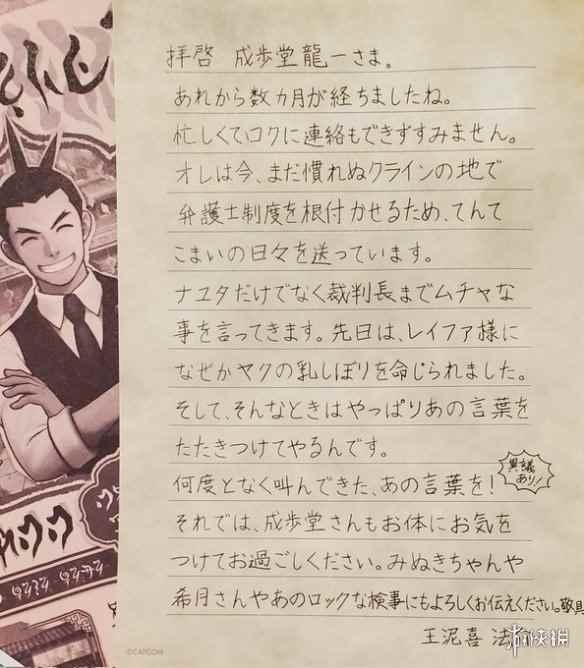 拝啓　成歩堂龍一さま。
あれから数カ月が経ちましたね。
忙しくてロクに連絡もできずすみません。
オレは今、まだ慣れぬクラインの地で
弁護士制度を根付かせるため、てんて
こまいの日々を送っています。
ナユタだけでなく裁判長までムチャな
事を言ってきます。先日は、レイファ様に
なぜかヤクの乳しぼりを命じられました。
そして、そんなときはやっぱりあの言葉を
たたきつけてやるんです。
何度となく叫んできた、あの言葉を!
異議
あり!
それでは、成歩堂さんもお体にお気を
つけてお過ごしください。みぬきちゃんや
希月さんやあのロックな検事にもよろしくお伝えください。敬具
王泥喜 法介
©CAPCOM